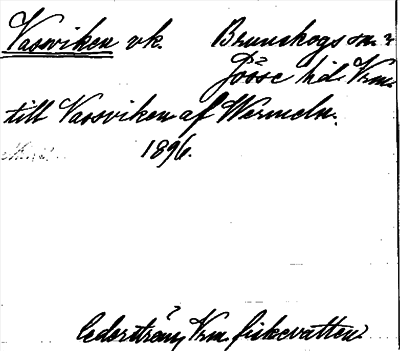 Vassviken vk. Brunskogs sn.
Jösse hd. Vrm.
till Vassviken af Wermeln.
1896.
Cederström, Vrm. fiskevatten